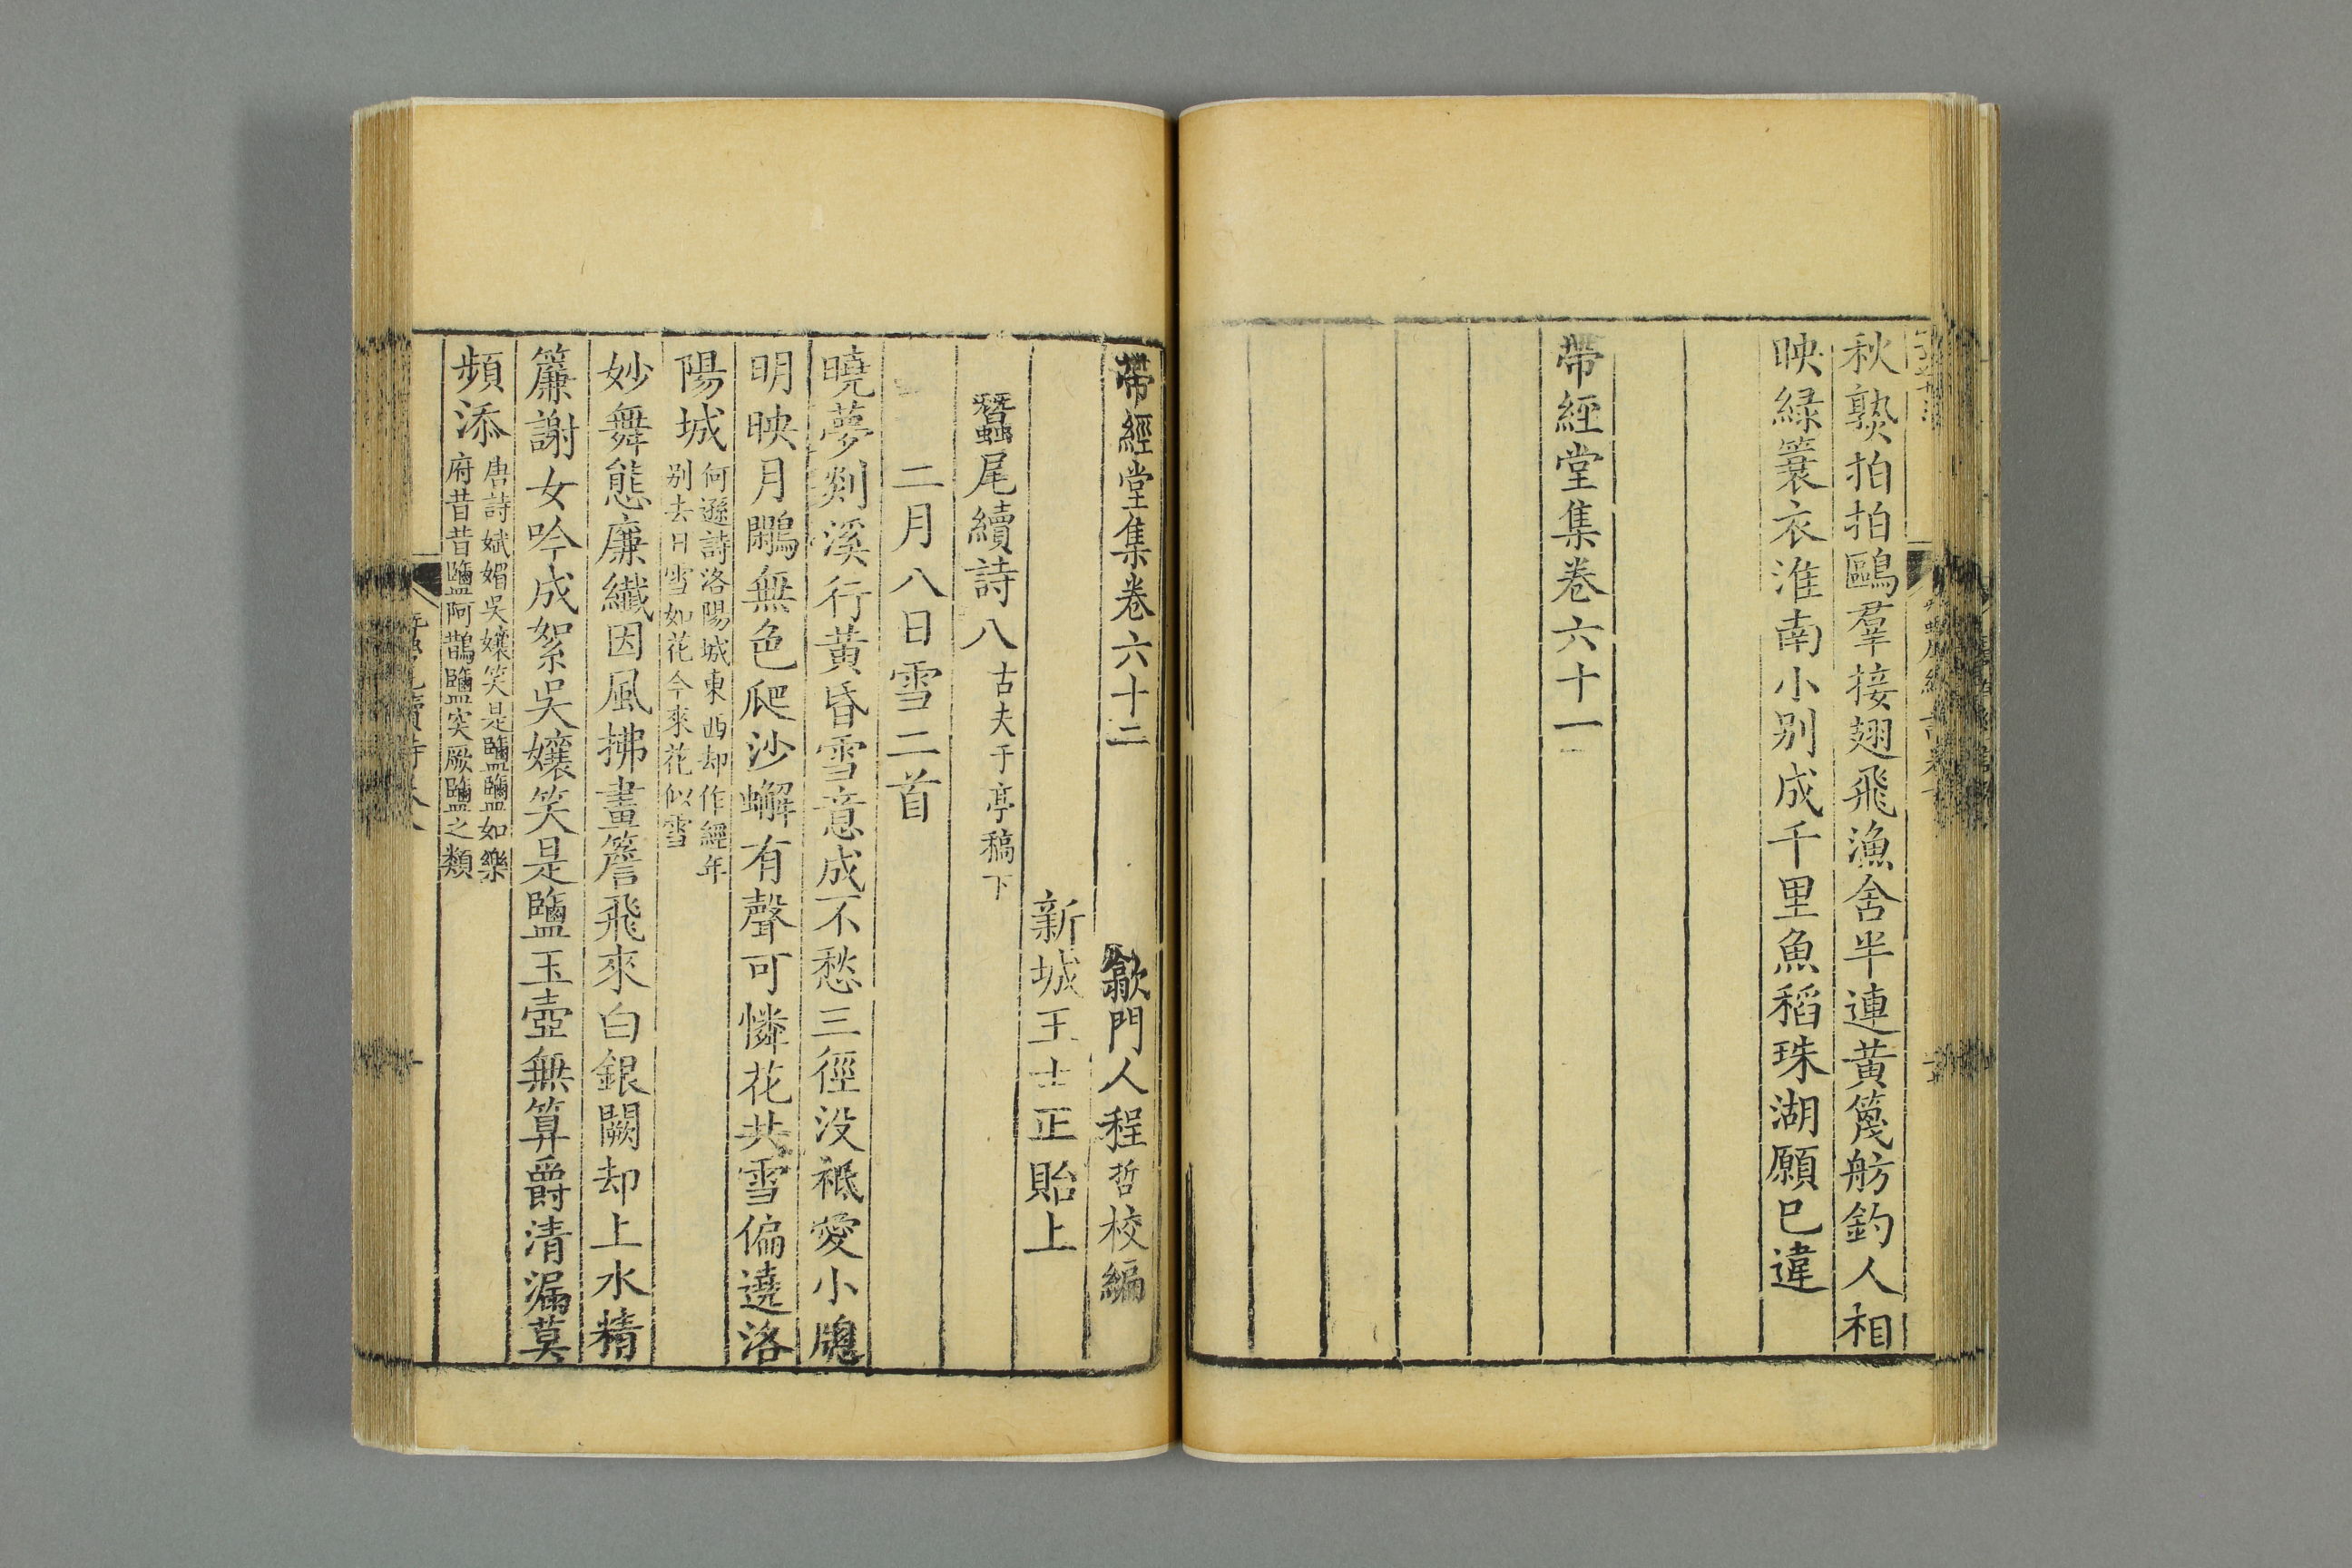 秋熟拍拍鷗羣接翅飛漁舍半連黃篾舫釣人相
映綠簑衣淮南小别成千里魚稻珠湖願巳違
帶經堂集卷六十一
帶經堂集卷六十二
歙門人程哲校編
新城王士正貽上
蠶尾續詩八
古夫于亭稿下
二月八日雪二首
曉夢剡溪行黃昏雪意成不愁三徑没祗愛小牕
明映月鷴無色爬沙蠏有聲可憐花共雪偏遶洛
陽城
何遜詩洛陽城東西却作經年
别去日雪如花今來花似雪
妙舞態廉纖因風拂畫簷飛來白銀闕却上水精
簾謝女吟成絮吳孃笑是鹽玉壺無算爵清漏莫
頻添
唐詩娬媚吳孃笑是鹽鹽如樂
府昔昔鹽阿鵲鹽突厥鹽之類